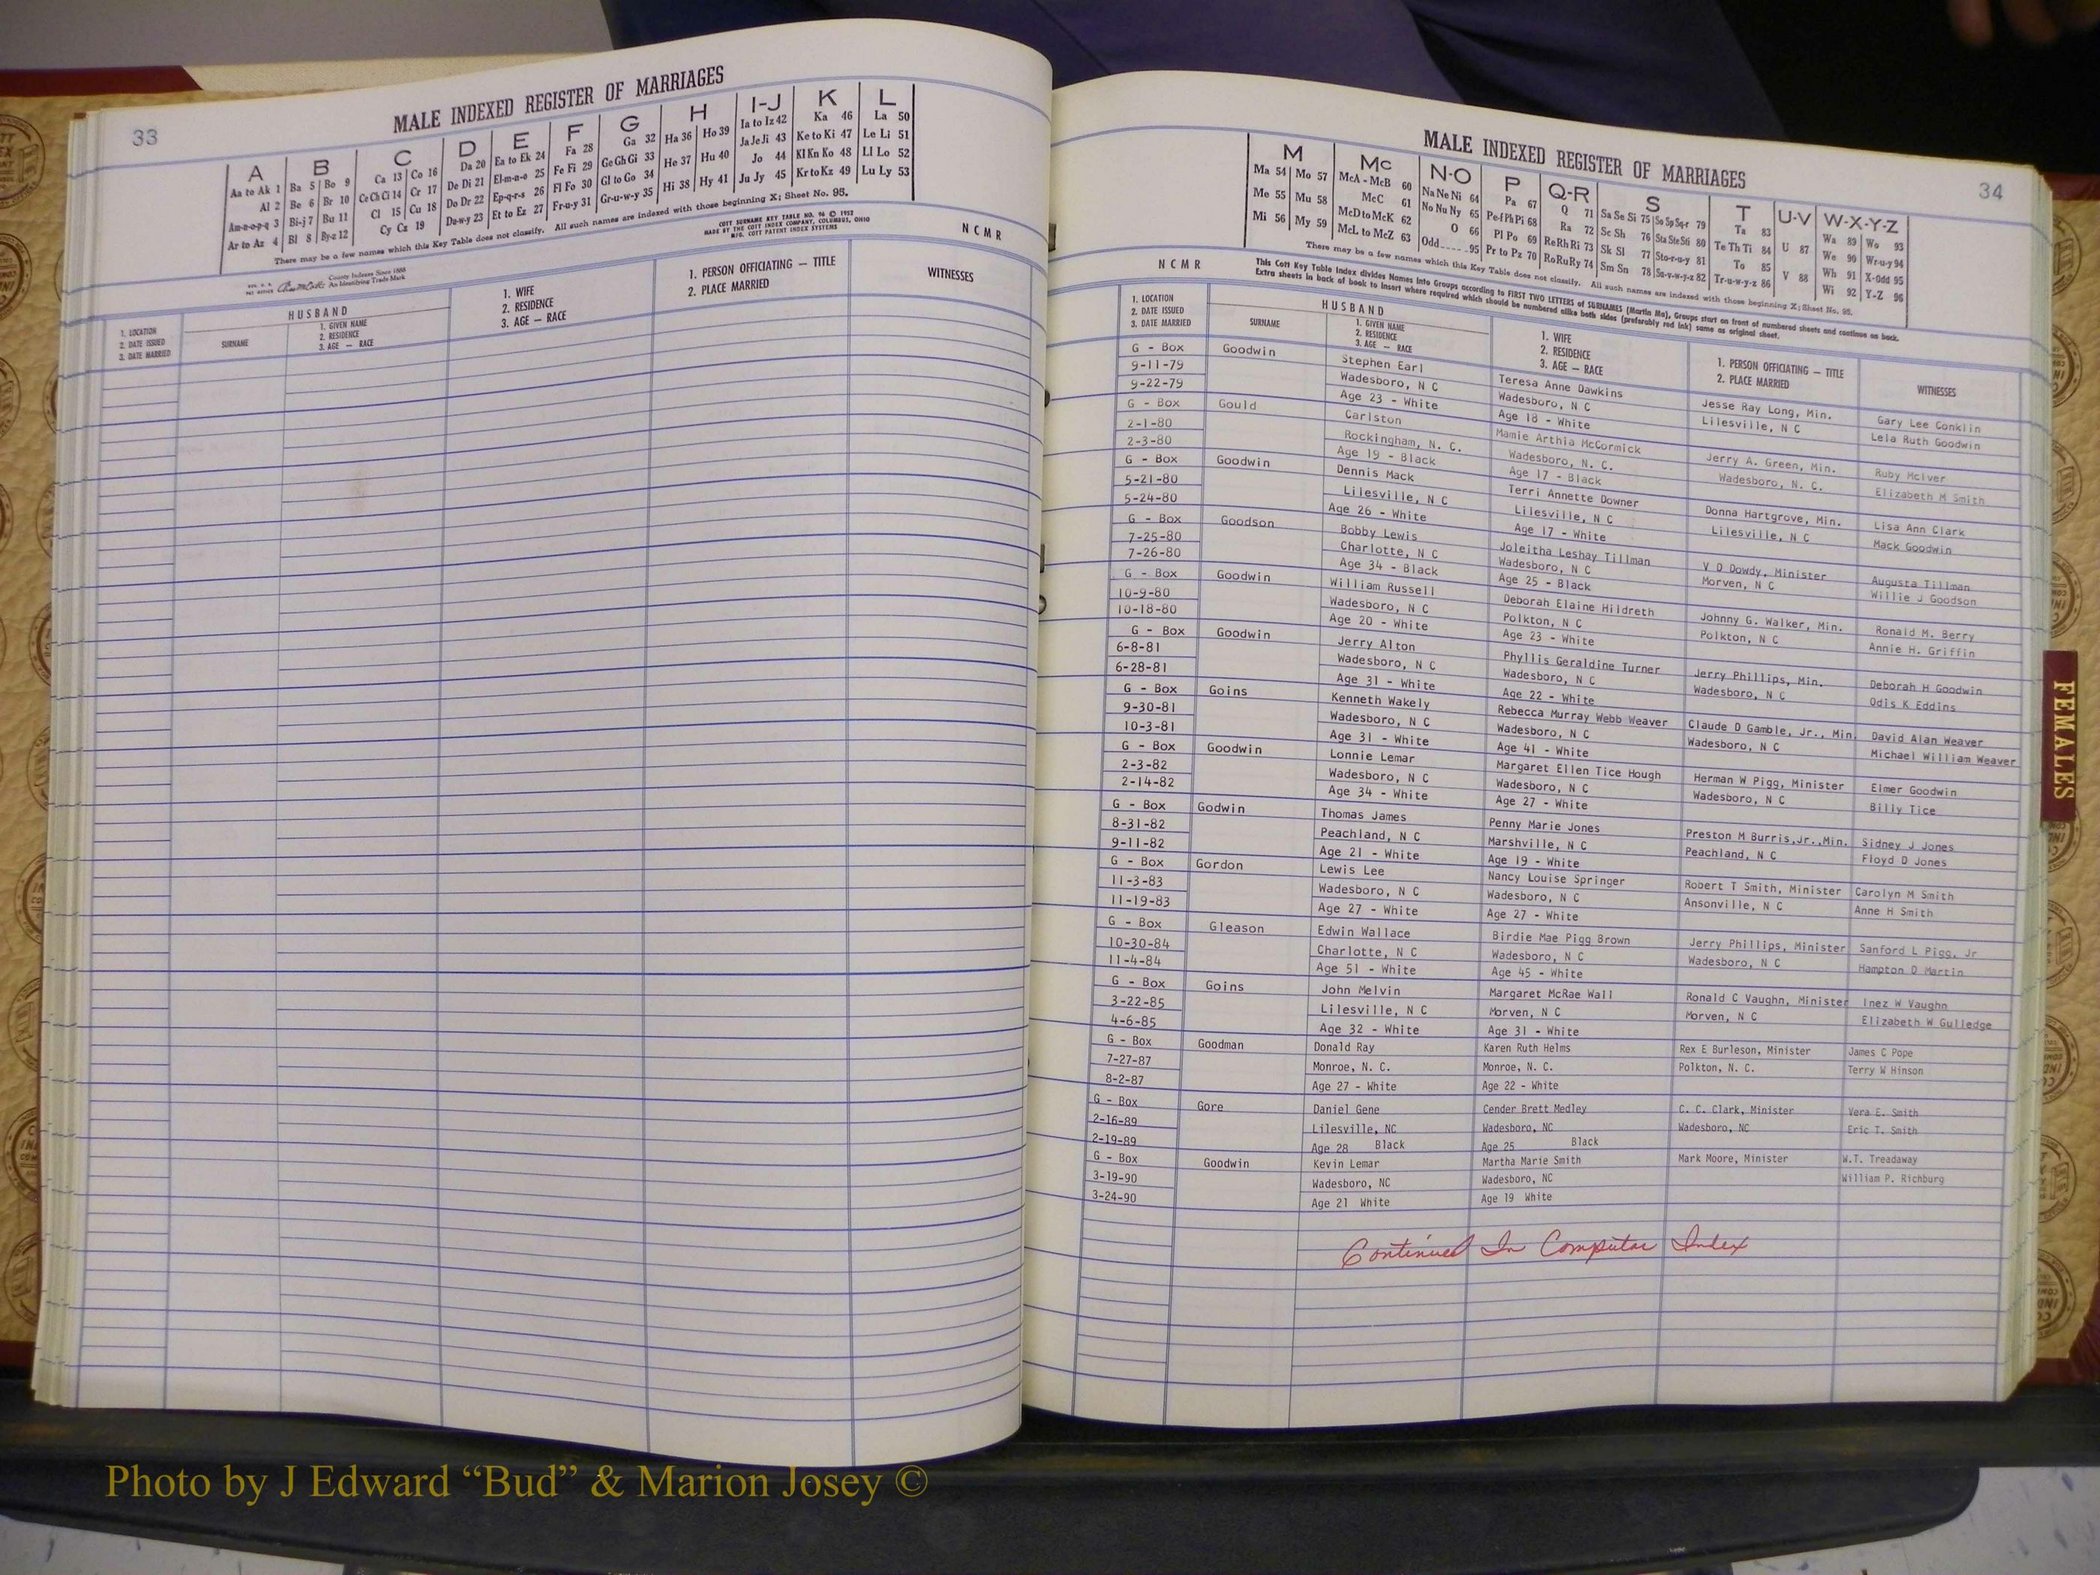 33
MALE INDEXED REGISTER OF MARRIAGES
A B C D E F G H I-J K L
Aa to Ak 1 Ba 5 Bo 9 Ca 13 Co 16 Da 20 Ea to Ek 24 Fa 28 Ga 32 Ha 36 Ho 39 Ia to Iz 42 Ka 46 La 50
Al 2 Be 6 Br 10 Ce Ch Ci 14 Cr 17 De Di 21 El-m-n-o 25 Fe Fi 29 Ge Gh Gi 33 He 37 Hu 40 Ja Je Ji 43 Ke to Ki 47 Le Li 51
Am-n-o-p-q 3 Bi-j 7 Bu 11 Cl 15 Cu 18 Do Dr 22 Ep-q-r-s 26 Fl Fo 30 Gl to Go 34 Hi 38 Hy 41 Jo 44 Kl Kn Ko 48 Ll Lo 52
Ar to Az 4 Bl 8 By-z 12 Cy Cz 19 Du-w-y 23 Et to Ez 27 Fr-u-y 31 Gr-u-w-y 35 Ju Jy 45 Kr to Kz 49 Lu Ly 53
There may be a few names which this Key Table does not classify. All such names are indexed with those beginning X; Sheet No. 95.
COTT SURNAME KEY TABLE NO. 96 © 1952
MADE BY THE COTT INDEX COMPANY, COLUMBUS, OHIO
MFG. COTT PATENT INDEX SYSTEMS
N C M R
County Indexes Since 1888
An Identifying Trade Mark
1. LOCATION
2. DATE ISSUED
3. DATE MARRIED
SURNAME
HUSBAND
1. GIVEN NAME
2. RESIDENCE
3. AGE — RACE
1. WIFE
2. RESIDENCE
3. AGE — RACE
1. PERSON OFFICIATING — TITLE
2. PLACE MARRIED
WITNESSES
MALE INDEXED REGISTER OF MARRIAGES
34
M Mc N-O P Q-R S T U-V W-X-Y-Z
Ma 54 Mo 57 McA - McB 60 Na Ne Ni 64 Pa 67 Q 71 Sa Se Si 75 So Sp Sq-r 79 Ta 83 Wa 89 Wo 93
Me 55 Mu 58 McC 61 No Nu Ny 65 Pe-f Ph Pi 68 Ra 72 Sc Sh 76 Sta Ste Sti 80 Te Th Ti 84 U 87 We 90 Wr-u-y 94
Mi 56 My 59 McD to McK 62 O 66 Pl Po 69 Re Rh Ri 73 Sk Sl 77 Sto-r-u-y 81 To 85 Wh 91 X-Odd 95
McL to McZ 63 Odd 95 Pr to Pz 70 Ro Ru Ry 74 Sm Sn 78 Su-v-w-y-z 82 Tr-u-w-y-z 86 V 88 Wi 92 Y-Z 96
There may be a few names which this Key Table does not classify. All such names are indexed with those beginning X; Sheet No. 95.
N C M R
This Cott Key Table Index divides Names into Groups according to FIRST TWO LETTERS of SURNAMES (Martin Ma), Groups start on front of numbered sheets and continue on back.
Extra sheets in back of book to insert where required which should be numbered alike both sides (preferably red ink) same as original sheet.
1. LOCATION
2. DATE ISSUED
3. DATE MARRIED
SURNAME
HUSBAND
1. GIVEN NAME
2. RESIDENCE
3. AGE — RACE
1. WIFE
2. RESIDENCE
3. AGE — RACE
1. PERSON OFFICIATING — TITLE
2. PLACE MARRIED
WITNESSES
G - Box Goodwin Stephen Earl Teresa Anne Dawkins Jesse Ray Long, Min. Gary Lee Conklin
9-11-79 Wadesboro, N C Wadesboro, N C Lilesville, N C Lela Ruth Goodwin
9-22-79 Age 23 - White Age 18 - White
G - Box Gould Carlston Mamie Arthia McCormick Jerry A. Green, Min. Ruby McIver
2-1-80 Rockingham, N. C. Wadesboro, N. C. Wadesboro, N. C. Elizabeth M Smith
2-3-80 Age 19 - Black Age 17 - Black
G - Box Goodwin Dennis Mack Terri Annette Downer Donna Hartgrove, Min. Lisa Ann Clark
5-21-80 Lilesville, N C Lilesville, N C Lilesville, N C Mack Goodwin
5-24-80 Age 26 - White Age 17 - White
G - Box Goodson Bobby Lewis Joleitha Leshay Tillman V D Dowdy, Minister Augusta Tillman
7-25-80 Charlotte, N C Wadesboro, N C Morven, N C Willie J Goodson
7-26-80 Age 34 - Black Age 25 - Black
G - Box Goodwin William Russell Deborah Elaine Hildreth Johnny G. Walker, Min. Ronald M. Berry
10-9-80 Wadesboro, N C Polkton, N C Polkton, N C Annie H. Griffin
10-18-80 Age 20 - White Age 23 - White
G - Box Goodwin Jerry Alton Phyllis Geraldine Turner Jerry Phillips, Min. Deborah H Goodwin
6-8-81 Wadesboro, N C Wadesboro, N C Wadesboro, N C Odis K Eddins
6-28-81 Age 31 - White Age 22 - White
G - Box Goins Kenneth Wakely Rebecca Murray Webb Weaver Claude D Gamble, Jr., Min. David Alan Weaver
9-30-81 Wadesboro, N C Wadesboro, N C Wadesboro, N C Michael William Weaver
10-3-81 Age 31 - White Age 41 - White
G - Box Goodwin Lonnie Lemar Margaret Ellen Tice Hough Herman W Pigg, Minister Elmer Goodwin
2-3-82 Wadesboro, N C Wadesboro, N C Wadesboro, N C Billy Tice
2-14-82 Age 34 - White Age 27 - White
G - Box Godwin Thomas James Penny Marie Jones Preston M Burris,Jr.,Min. Sidney J Jones
8-31-82 Peachland, N C Marshville, N C Peachland, N C Floyd D Jones
9-11-82 Age 21 - White Age 19 - White
G - Box Gordon Lewis Lee Nancy Louise Springer Robert T Smith, Minister Carolyn M Smith
11-3-83 Wadesboro, N C Wadesboro, N C Ansonville, N C Anne H Smith
11-19-83 Age 27 - White Age 27 - White
G - Box Gleason Edwin Wallace Birdie Mae Pigg Brown Jerry Phillips, Minister Sanford L Pigg, Jr
10-30-84 Charlotte, N C Wadesboro, N C Wadesboro, N C Hampton D Martin
11-4-84 Age 51 - White Age 45 - White
G - Box Goins John Melvin Margaret McRae Wall Ronald C Vaughn, Minister Inez W Vaughn
3-22-85 Lilesville, N C Morven, N C Morven, N C Elizabeth W Gulledge
4-6-85 Age 32 - White Age 31 - White
G - Box Goodman Donald Ray Karen Ruth Helms Rex E Burleson, Minister James C Pope
7-27-87 Monroe, N. C. Monroe, N. C. Polkton, N. C. Terry W Hinson
8-2-87 Age 27 - White Age 22 - White
G - Box Gore Daniel Gene Cender Brett Medley C. C. Clark, Minister Vera E. Smith
2-16-89 Lilesville, NC Wadesboro, NC Wadesboro, NC Eric T. Smith
2-19-89 Age 28 Black Age 25 Black
G - Box Goodwin Kevin Lemar Martha Marie Smith Mark Moore, Minister W.T. Treadaway
3-19-90 Wadesboro, NC Wadesboro, NC William P. Richburg
3-24-90 Age 21 White Age 19 White
Continued In Computer Index
FEMALES
Photo by J Edward “Bud” & Marion Josey ©